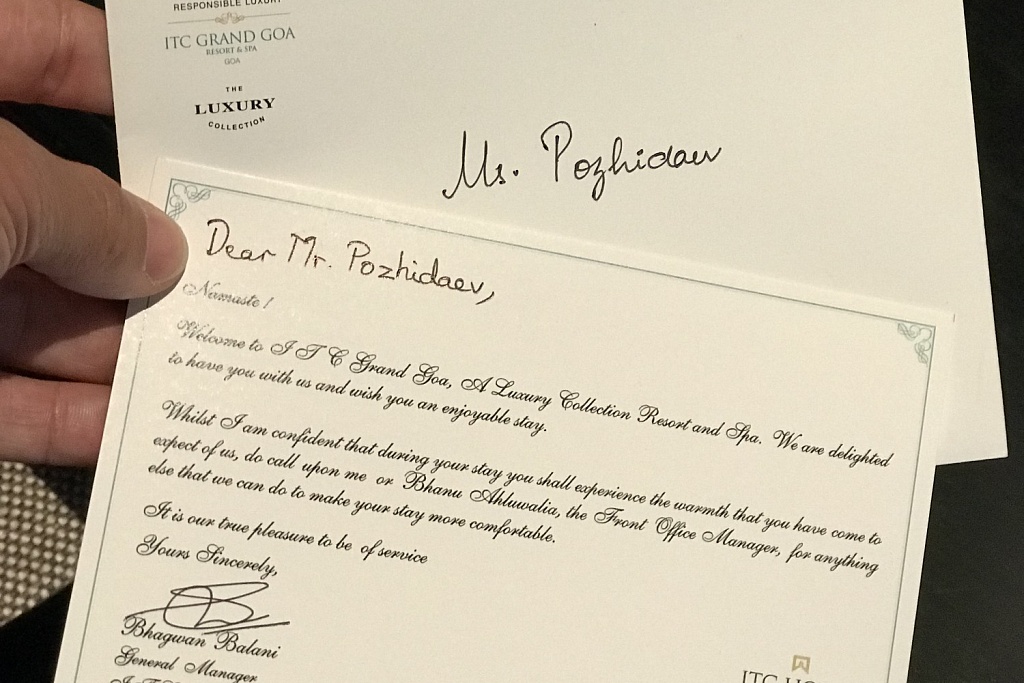 RESPONSIBLE LUXURY
ITC GRAND GOA
RESORT & SPA
GOA
THE
LUXURY
COLLECTION
Ms. Pozhidaev
Dear Mr. Pozhidaev,
Namaste!
Welcome to I T C Grand Goa, A Luxury Collection Resort and Spa. We are delighted
to have you with us and wish you an enjoyable stay.
Whilst I am confident that during your stay you shall experience the warmth that you have come to
expect of us, do call upon me or Bhanu Ahluwalia, the Front Office Manager, for anything
else that we can do to make your stay more comfortable.
It is our true pleasure to be of service
Yours Sincerely,
Bhagwan Balani
General Manager
ITC